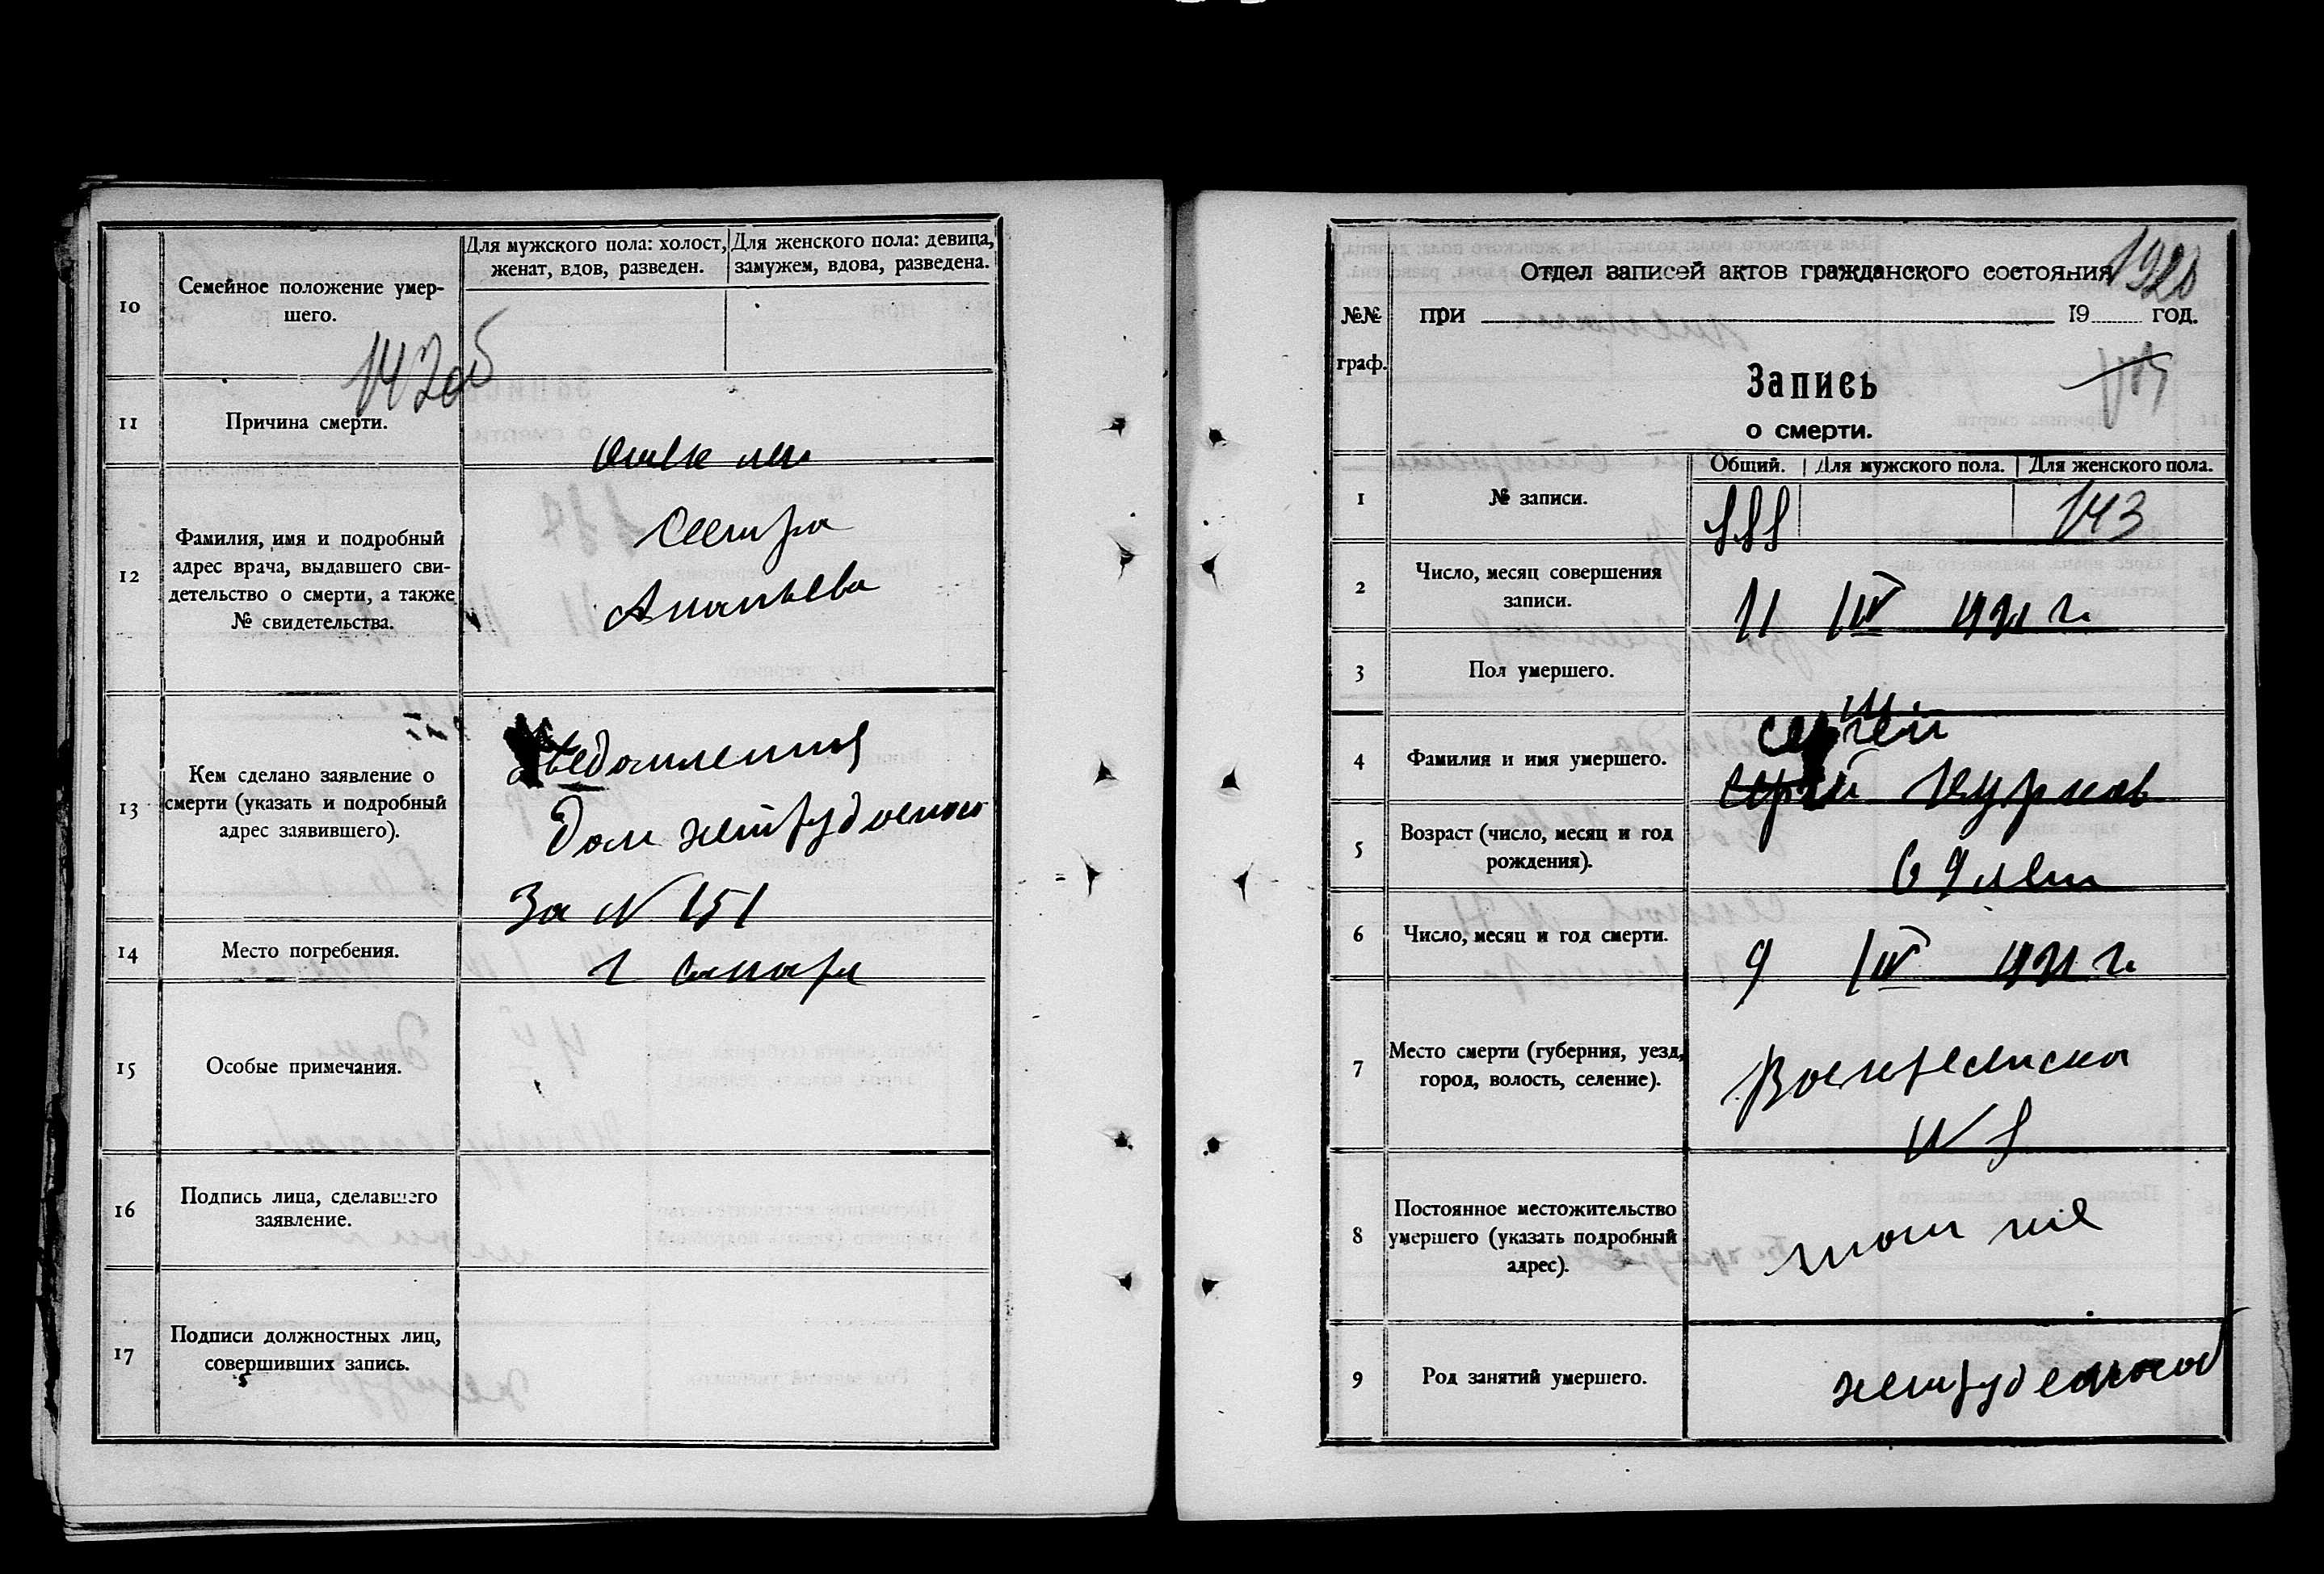 10
Семейное положение умер-
шего.
Для мужского пола: холост,
женат, вдов, разведен.
Для женского пола: девица,
замужем, вдова, разведена.
142об
11
Причина смерти.
12
Фамилия, имя и подробный
адрес врача, выдавшего сви-
детельство о смерти, а также
№ свидетельства.
Сестра
Ананьева
13
Кем сделано заявление о
смерти (указать и подробный
адрес заявившего).
Уведомления
Дом нетрудоспос
За N 151
14
Место погребения.
г Самара
15
Особые примечания.
16
Подпись лица, сделавшего
заявление.
17
Подписи должностных лиц,
совершивших запись.
Отдел записей актов гражданского состояния
№№
граф.
при 19 год.
Запись
о смерти.
1
№ записи.
Общий. Для мужского пола. Для женского пола.
143
2
Число, месяц совершения
записи.
11 IV 1921 г.
3
Пол умершего.
м.
4
Фамилия и имя умершего.
Сергей
Сергей Курков
5
Возраст (число, месяц и год
рождения).
69 лет
6
Число, месяц и год смерти.
9 IV 1921 г.
7
Место смерти (губерния, уезд,
город, волость, селение).
Воскресенска
8
Постоянное местожительство
умершего (указать подробный
адрес).
там же
9
Род занятий умершего.